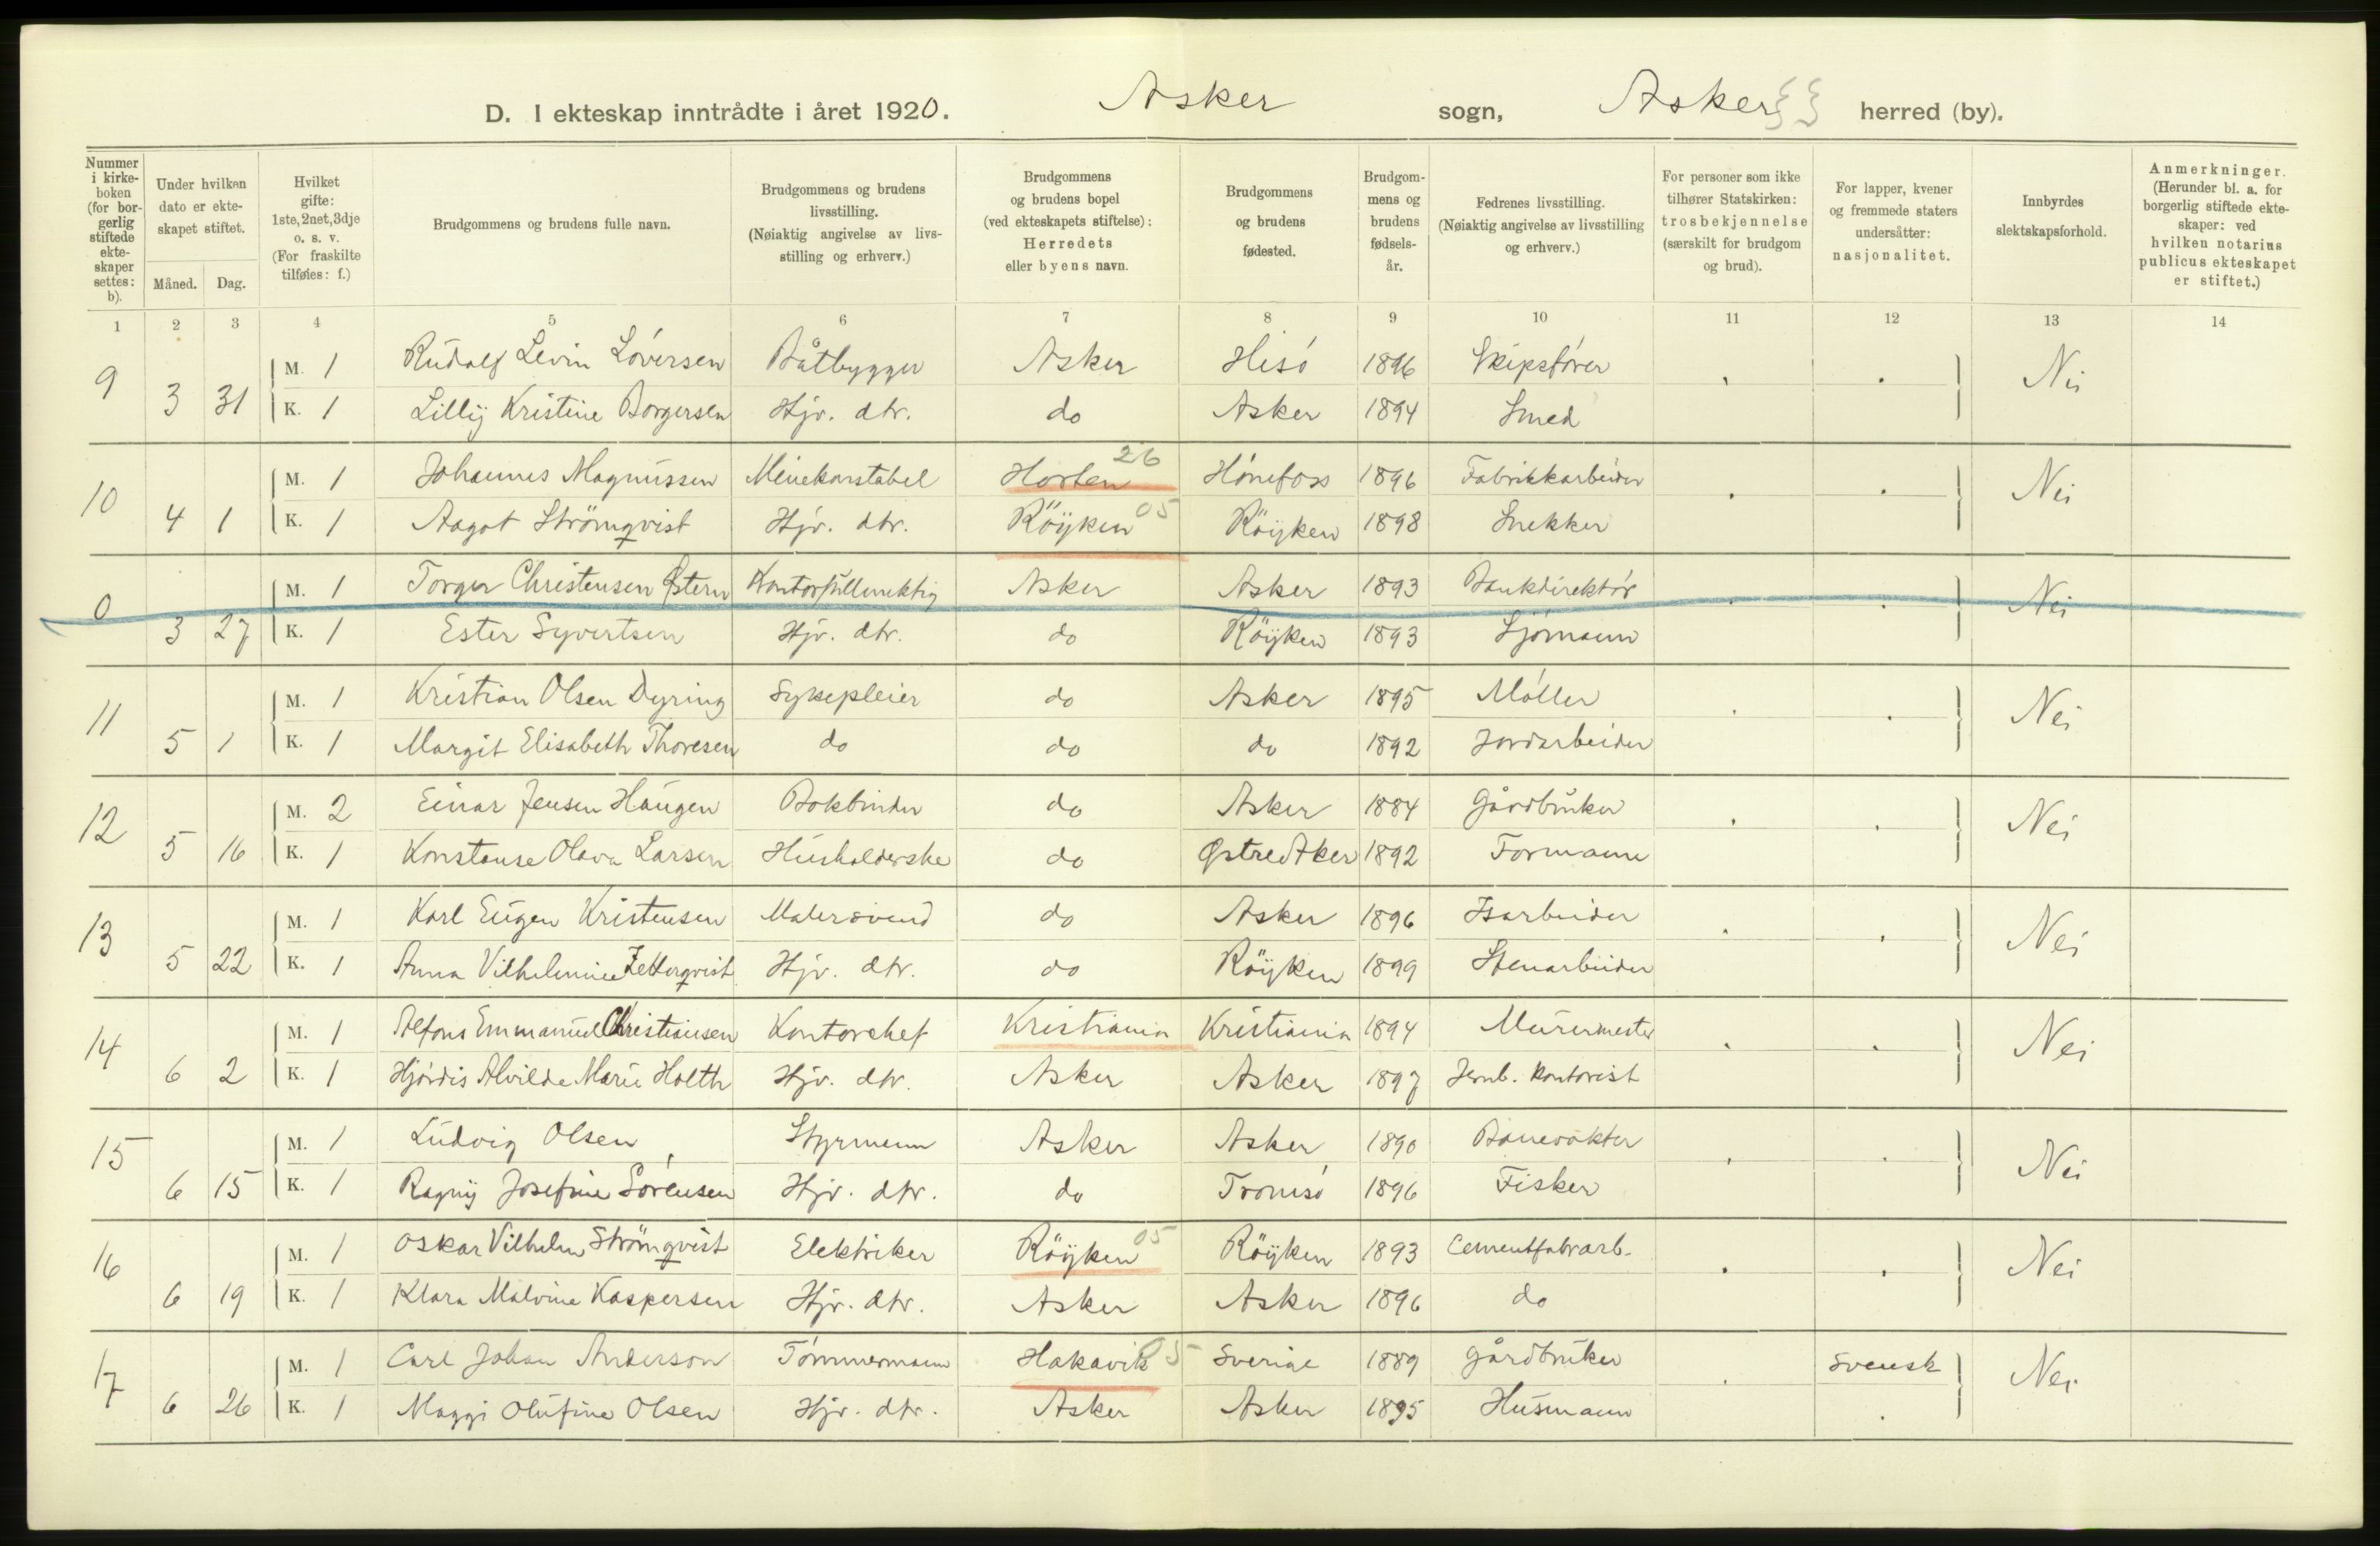 D. I ekteskap inntrådte i året 1920. Asker sogn, Asker herred (by).
Nummer i kirkeboken (for borgerlig stiftede ekteskaper settes: b).
Under hvilken dato er ekteskapet stiftet.
Måned. Dag.
Hvilket gifte: 1ste, 2net, 3dje o. s. v. (For fraskilte tilføies: f.)
Brudgommens og brudens fulle navn.
Brudgommens og brudens livsstilling. (Nøiaktig angivelse av livsstilling og erhverv.)
Brudgommens og brudens bopel (ved ekteskapets stiftelse): Herredets eller byens navn.
Brudgommens og brudens fødested.
Brudgommens og brudens fødselsår.
Fedrenes livsstilling. (Nøiaktig angivelse av livsstilling og erhverv.)
For personer som ikke tilhører Statskirken: trosbekjennelse (særskilt for brudgom og brud).
For lapper, kvener og fremmede staters undersåtter: nasjonalitet.
Innbyrdes slektskapsforhold.
Anmerkninger. (Herunder bl. a. for borgerlig stiftede ekteskaper: ved hvilken notarius publicus ekteskapet er stiftet.)
1 2 3 4 5 6 7 8 9 10 11 12 13 14
9 M. 1 Rudolf Levin Løversen Båtbygger Asker Hisø 1896 Skipsfører Nei
3 31 K. 1 Lilly Kristine Borgersen Hjv. dtr. do Asker 1894 Smed
10 M. 1 Johannes Magnussen Minekonstabel Horten 26 Hønefoss 1896 Fabrikkarbeider Nei
4 1 K. 1 Aagot Strömqvist Hjv. dtr. Röyken 05 Röyken 1898 Snekker
0 M. 1 Torger Christensen Østern Kontorfullmektig Asker Asker 1893 Bankdirektør Nei
3 27 K. 1 Ester Syvertsen Hjv. dtr. do Röyken 1893 Sjømann
11 M. 1 Kristian Olsen Dyring Sykepleier do Asker 1895 Møller Nei
5 1 K. 1 Margit Elisabeth Thoresen do do do 1892 Jordarbeider
12 M. 2 Einar Jensen Haugen Bokbinder do Asker 1884 Gårdbruker Nei
5 16 K. 1 Konstanse Olava Larsen Husholderske do Østre Aker 1892 Formann
13 M. 1 Karl Eugen Kristensen Malersvend do Asker 1896 Isarbeider Nei
5 22 K. 1 Anna Vilhelmine Zetterqvist Hjv. dtr. do Röyken 1899 Stenarbeider
14 M. 1 Alfons Emmanuel Christiansen Kontorchef Kristiania Kristiania 1894 Murermester Nei
6 2 K. 1 Hjørdis Alvilde Marie Holth Hjv. dtr. Asker Asker 1897 Jernb. kontorist
15 M. 1 Ludvig Olsen Styrmann Asker Asker 1890 Banevokter Nei
6 15 K. 1 Ragny Josefine Sørensen Hjv. dtr. do Tromsø 1896 Fisker
16 M. 1 Oskar Vilhelm Strömqvist Elektriker Röyken 05 Röyken 1893 Cementfabrarb. Nei
6 19 K. 1 Klara Malvine Kaspersen Hjv. dtr. Asker Asker 1896 do
17 M. 1 Carl Johan Anderson Tømmermann Hakavik 05 Sverige 1889 Gårdbruker Svensk Nei
6 26 K. 1 Maggi Olufine Olsen Hjv. dtr. Asker Asker 1895 Husmann